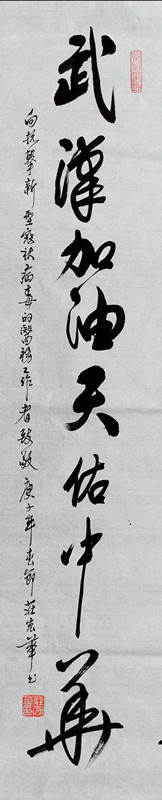 武漢加油天佑中華
向抗擊新型冠狀病毒的醫務工作者致敬 庚子年春節 莊宏華書